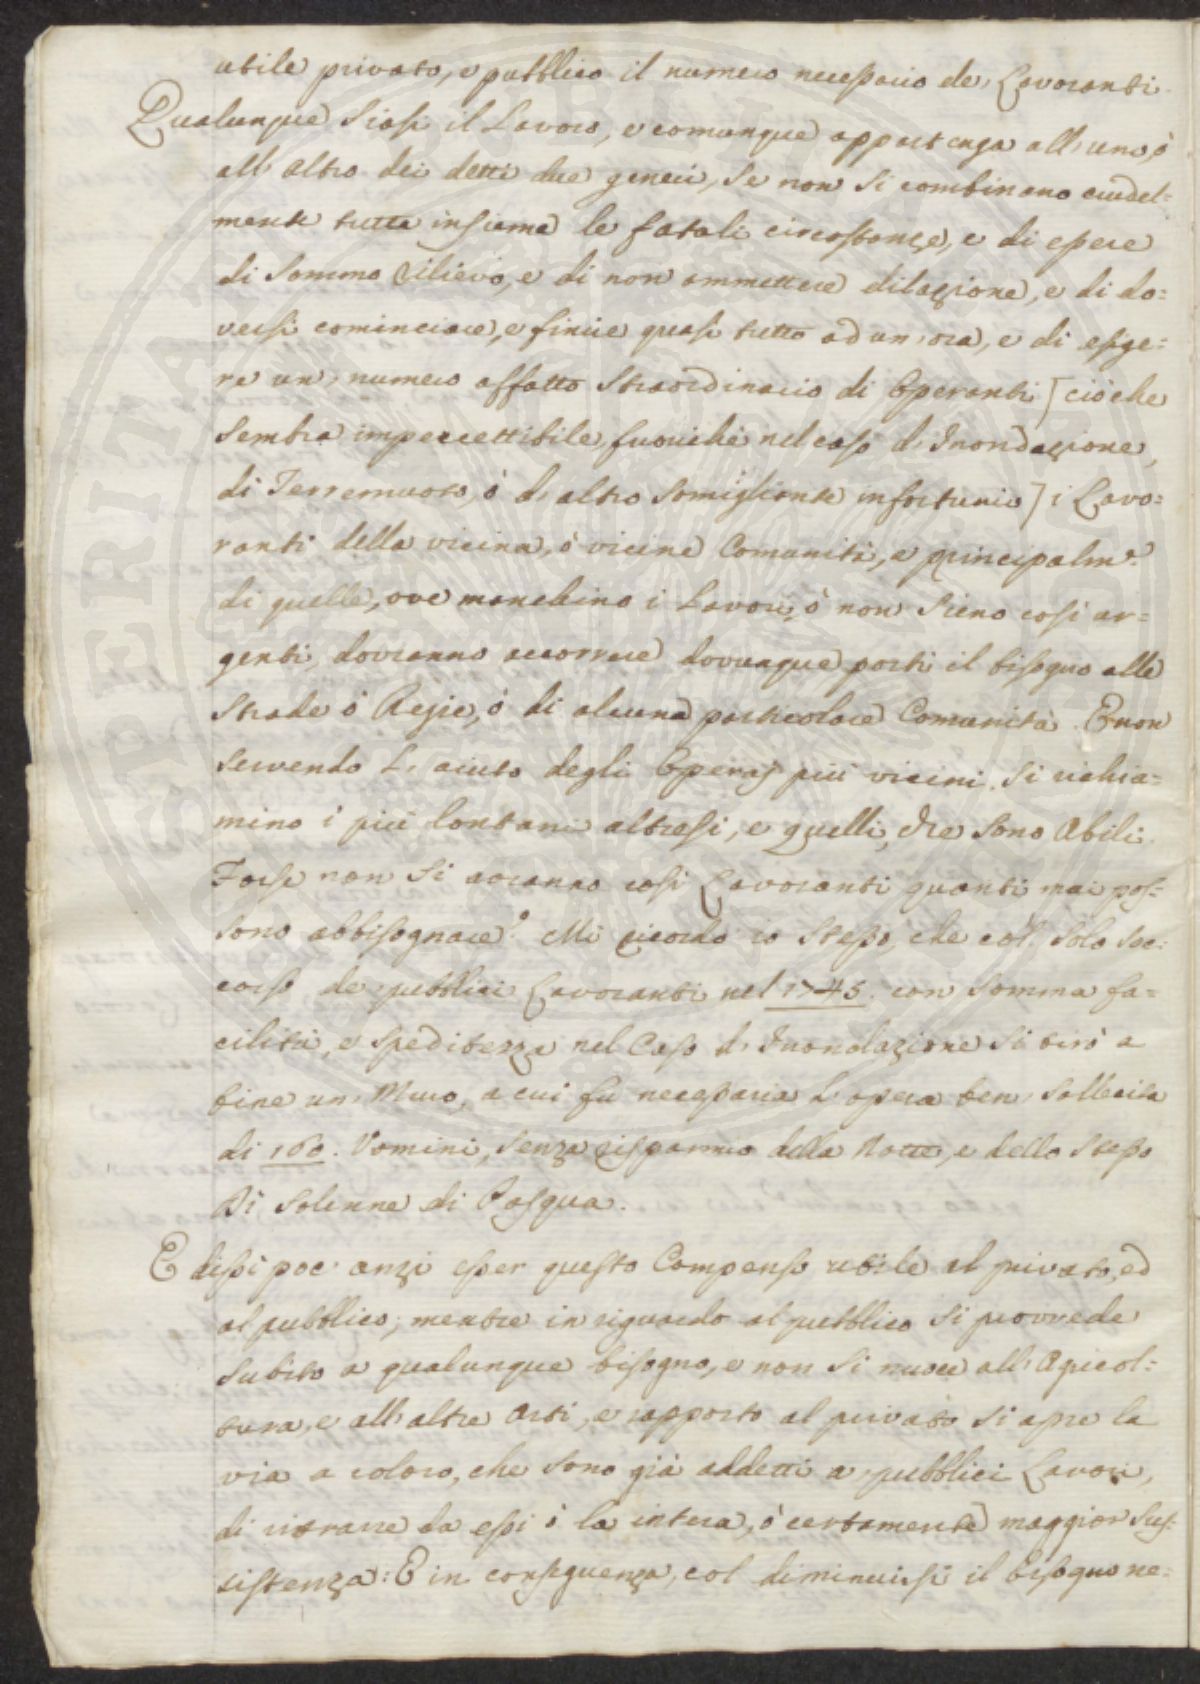 utile privato, e pubblico il numero necessario de' Lavoranti.
Qualunque siasi il Lavoro, e comunque appartenga all'uno, ò
all'altro dei detti due generi, se non si combinano crudel=
mente tutte insieme le fatali circostanze, e di essere
di sommo rilievo, e di non ammettere dilazione, e di do=
versi cominciare, e finire quasi tutto ad un'ora, e di esige=
re un' numero affatto straordinario di Operanti [ ciò che
sembra impercettibile, fuorichè nel caso d'Inondazione,
di Terremuoto, ò d'altro somigliante infortunio ] i Lavo=
ranti della vicina, ò vicine Comunità, e principalm.e
di quelle, ove manchino i Lavori, ò non sieno così ur=
genti, dovranno accorrere dovunque porti il bisogno alle
Strade ò Regie, ò di alcuna particolare Comunità. E non
servendo l'aiuto degli Operaj più vicini, si richia=
mino i più lontani altresì, e quelli, che sono Abili.
Forse non si avranno così Lavoranti quanti mai pos=
sono abbisognare? Mi ricordo io stesso, che col' solo soc=
corso de' pubblici Lavoranti nel 1745. con somma fa=
cilità, e speditezza nel Caso d'Inondazione si tirò a
fine un' Muro, a cui fù necessaria l'opera ben' sollecita
di 160. Uomini, senza risparmio della Notte, e dello stesso
Dì solenne di Pasqua.
E dissi poc'anzi esser questo Compenso utile al privato, ed
al pubblico; mentre in riguardo al pubblico si provvede
subito a qualunque bisogno, e non si nuoce all'Agricol=
tura, e all'altre Arti, e rapporto al privato si apre la
via a coloro, che sono già addetti a' pubblici Lavori,
di ritrarre da essi ò la intera, ò certamente maggior sus=
sistenza: E in conseguenza, col diminuirsi il bisogno ne=